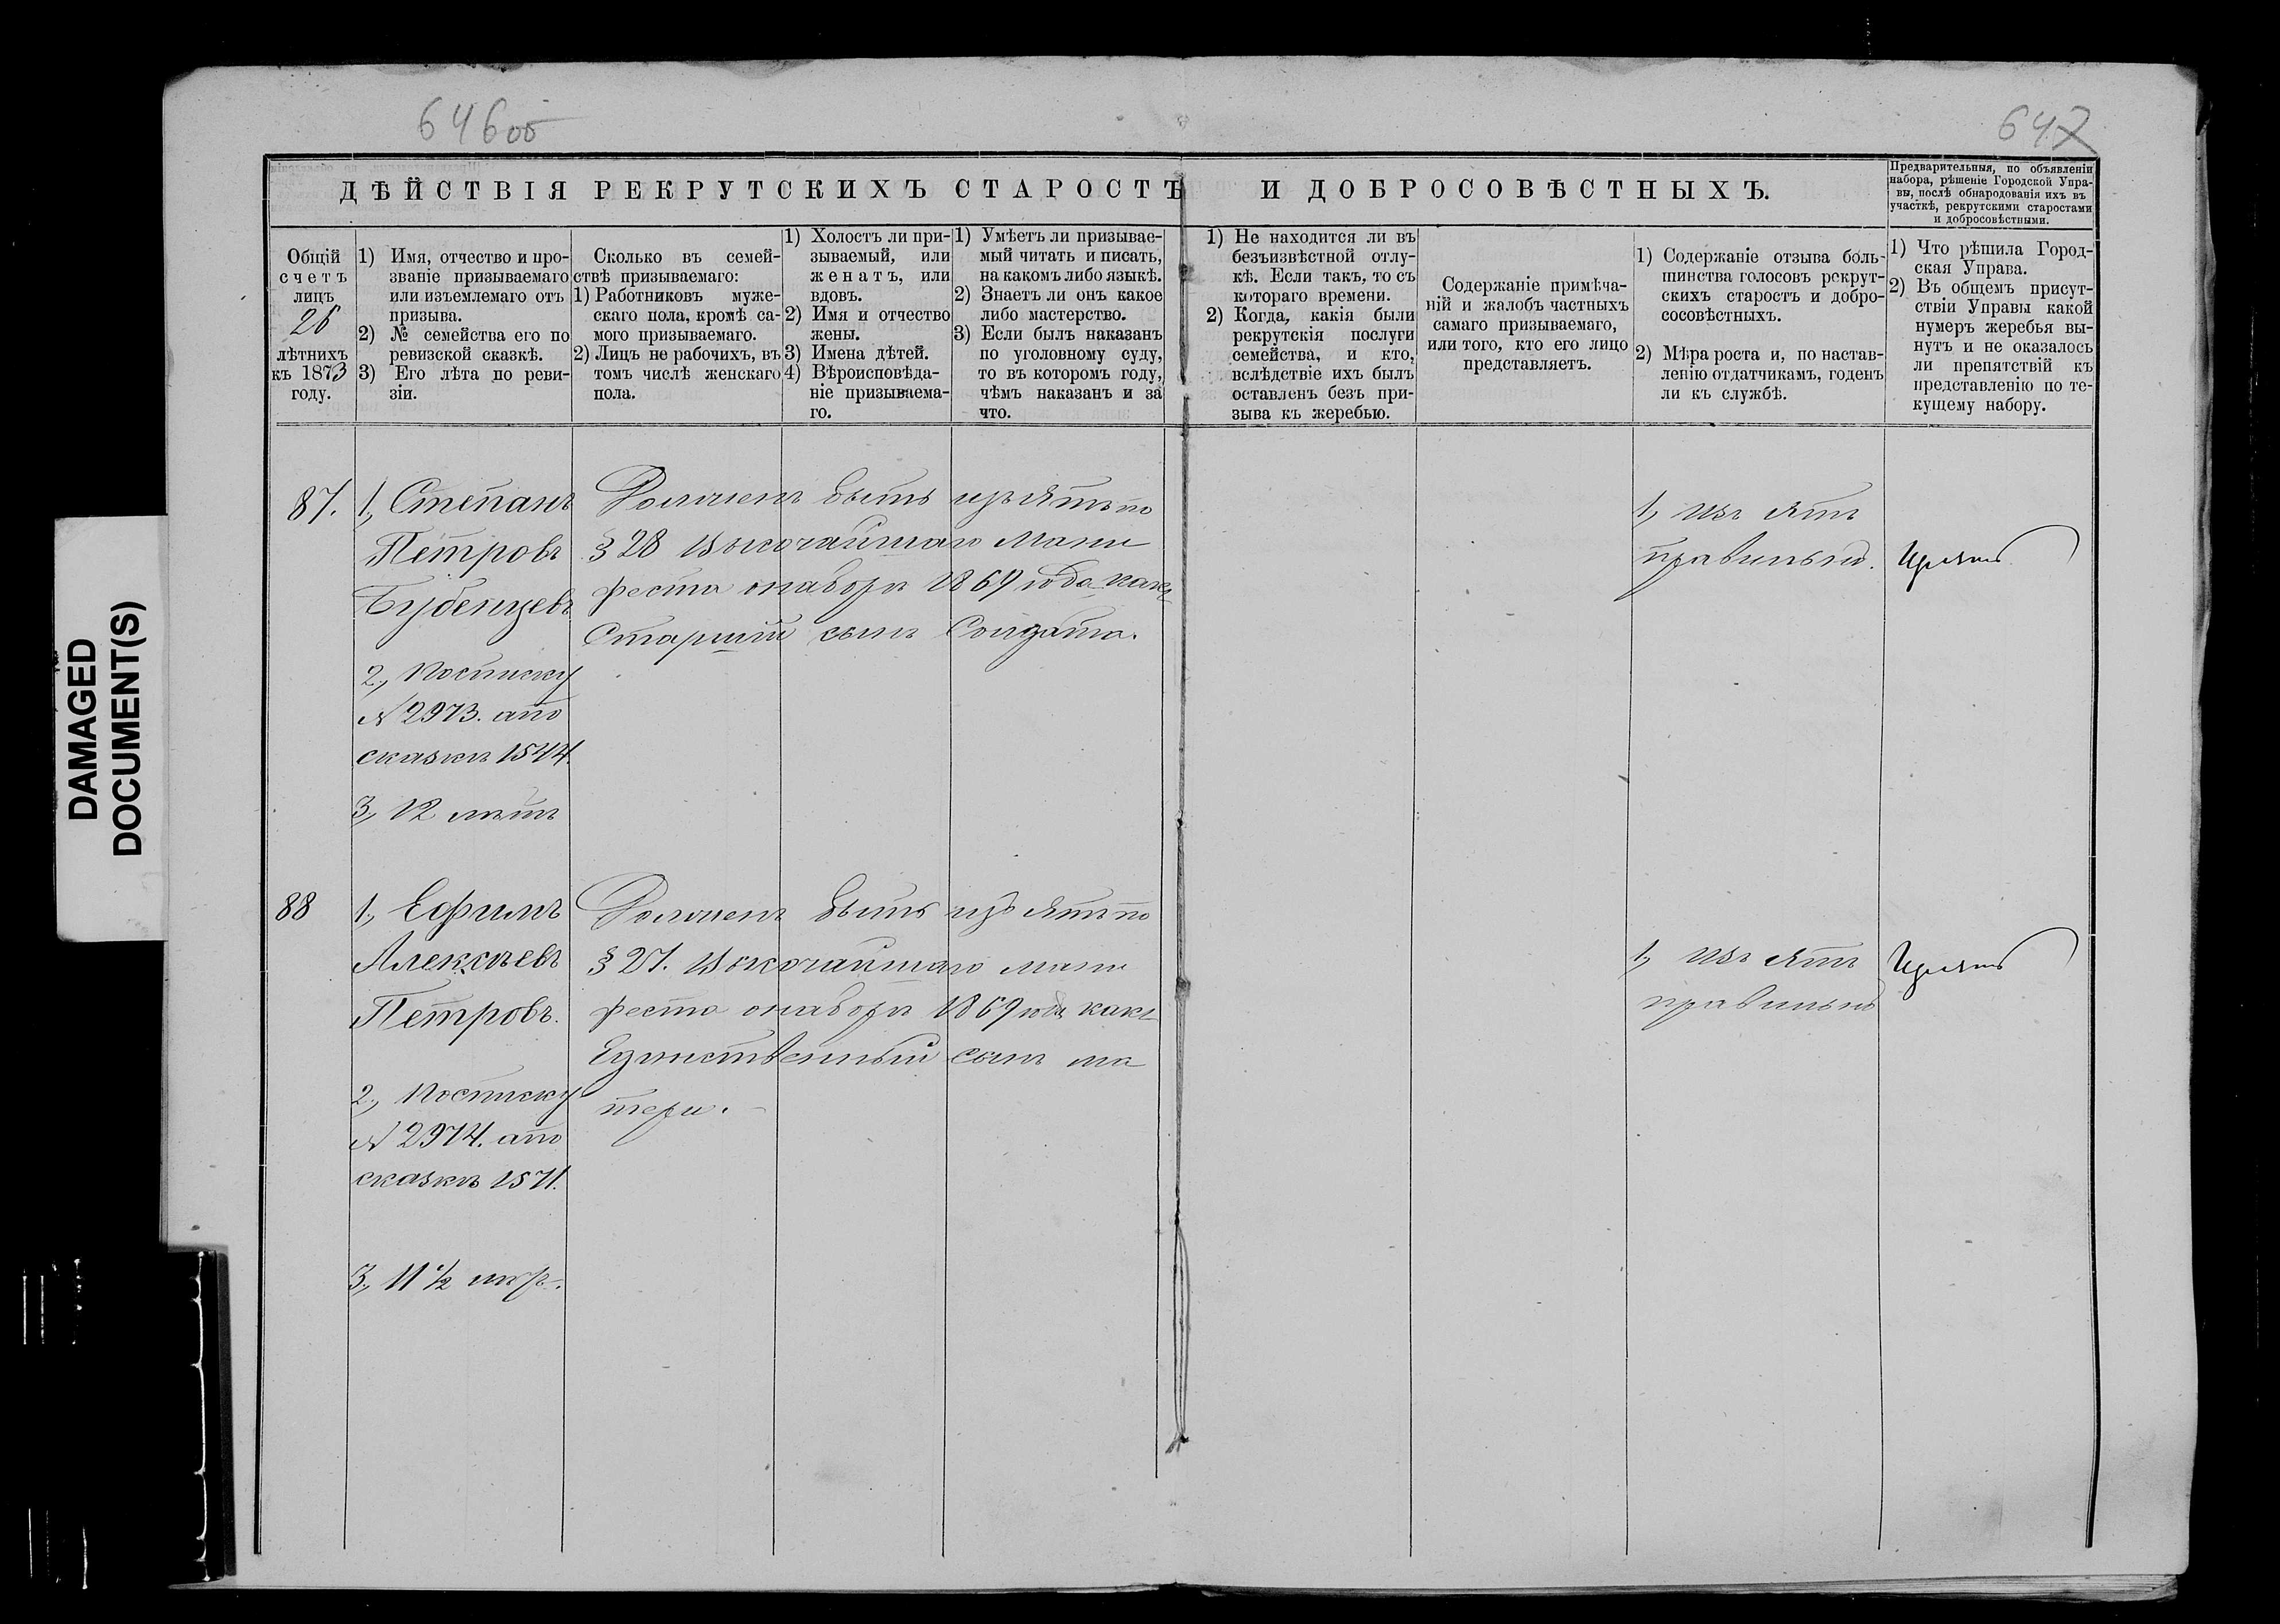 646 об
647
ДѢЙСТВІЯ РЕКРУТСКИХЪ СТАРОСТЪ И ДОБРОСОВѢСТНЫХЪ.
Предварительныя, по объявленіи
набора, рѣшеніе Городской Упра-
вы, послѣ обнародованія ихъ въ
участкѣ, рекрутскими старостами
и добросовѣстными.
Общій
счетъ
лицъ
26
лѣтнихъ
къ 1873
году.
1) Имя, отчество и про-
званіе призываемаго
или изъемлемаго отъ
призыва.
2) № семейства его по
ревизской сказкѣ.
3) Его лѣта по реви-
зіи.
Сколько въ семей-
ствѣ призываемаго:
1) Работниковъ муже-
скаго пола, кромѣ са-
мого призываемаго.
2) Лицъ не рабочихъ, въ
томъ числѣ женскаго
пола.
1) Холостъ ли при-
зываемый, или
женатъ, или
вдовъ.
2) Имя и отчество
жены.
3) Имена дѣтей.
4) Вѣроисповѣда-
ніе призываема-
го.
1) Умѣетъ ли призывае-
мый читать и писать,
на какомъ либо языкѣ.
2) Знаетъ ли онъ какое
либо мастерство.
3) Если былъ наказанъ
по уголовному суду,
то въ которомъ году,
чѣмъ наказанъ и за
что.
1) Не находится ли въ
безъизвѣстной отлу-
кѣ. Если такъ, то съ
котораго времени.
2) Когда, какія были
рекрутскія послуги
семейства, и кто,
вслѣдствіе ихъ былъ
оставленъ безъ при-
зыва къ жеребью.
Содержаніе примѣча-
ній и жалобъ частныхъ
самаго призываемаго,
или того, кто его лицо
представляетъ.
1) Содержаніе отзыва боль-
шинства голосовъ рекрут-
скихъ старостъ и добро-
сосовѣстныхъ.
2) Мѣра роста и, по настав-
ленію отдатчикамъ, годенъ
ли къ службѣ.
1) Что рѣшила Город-
ская Управа.
2) Въ общемъ присут-
ствіи Управы какой
нумеръ жеребья вы-
нутъ и не оказалось
ли препятствій къ
представленію по те-
кущему набору.
87.
1, Степанъ
Петровъ
Бубенцевъ
2, Посписку
№ 2973. апо
сказкѣ 1544.
3, 12 лѣтъ
Долженъ быть изъятъ по
§ 28 Высочайшаго Мани
феста онаборѣ 1869 года какъ
Старшій сынъ Солдата.
1, Изъятъ
правильно.
Изъятъ
88
1, Ефимъ
Алексѣевъ
Петровъ.
2, Посписку
№ 2974. апо
сказкѣ 1571.
3, 11 ½ лѣтъ.
Долженъ быть изъятъ по
§ 27. Высочайшаго мани
феста онаборѣ 1869 года какъ
Единственный сынъ ма
тери.
1, Изъятъ
правильно
Изъятъ
DAMAGED
DOCUMENT(S)